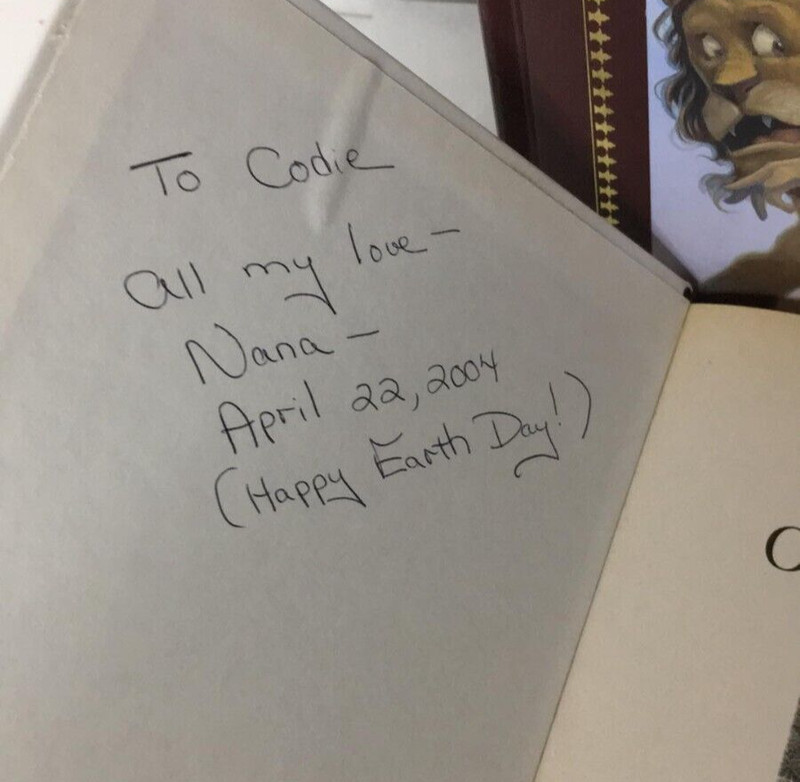 To Codie
All my love-
Nana-
April 22, 2004
(Happy Earth Day!)